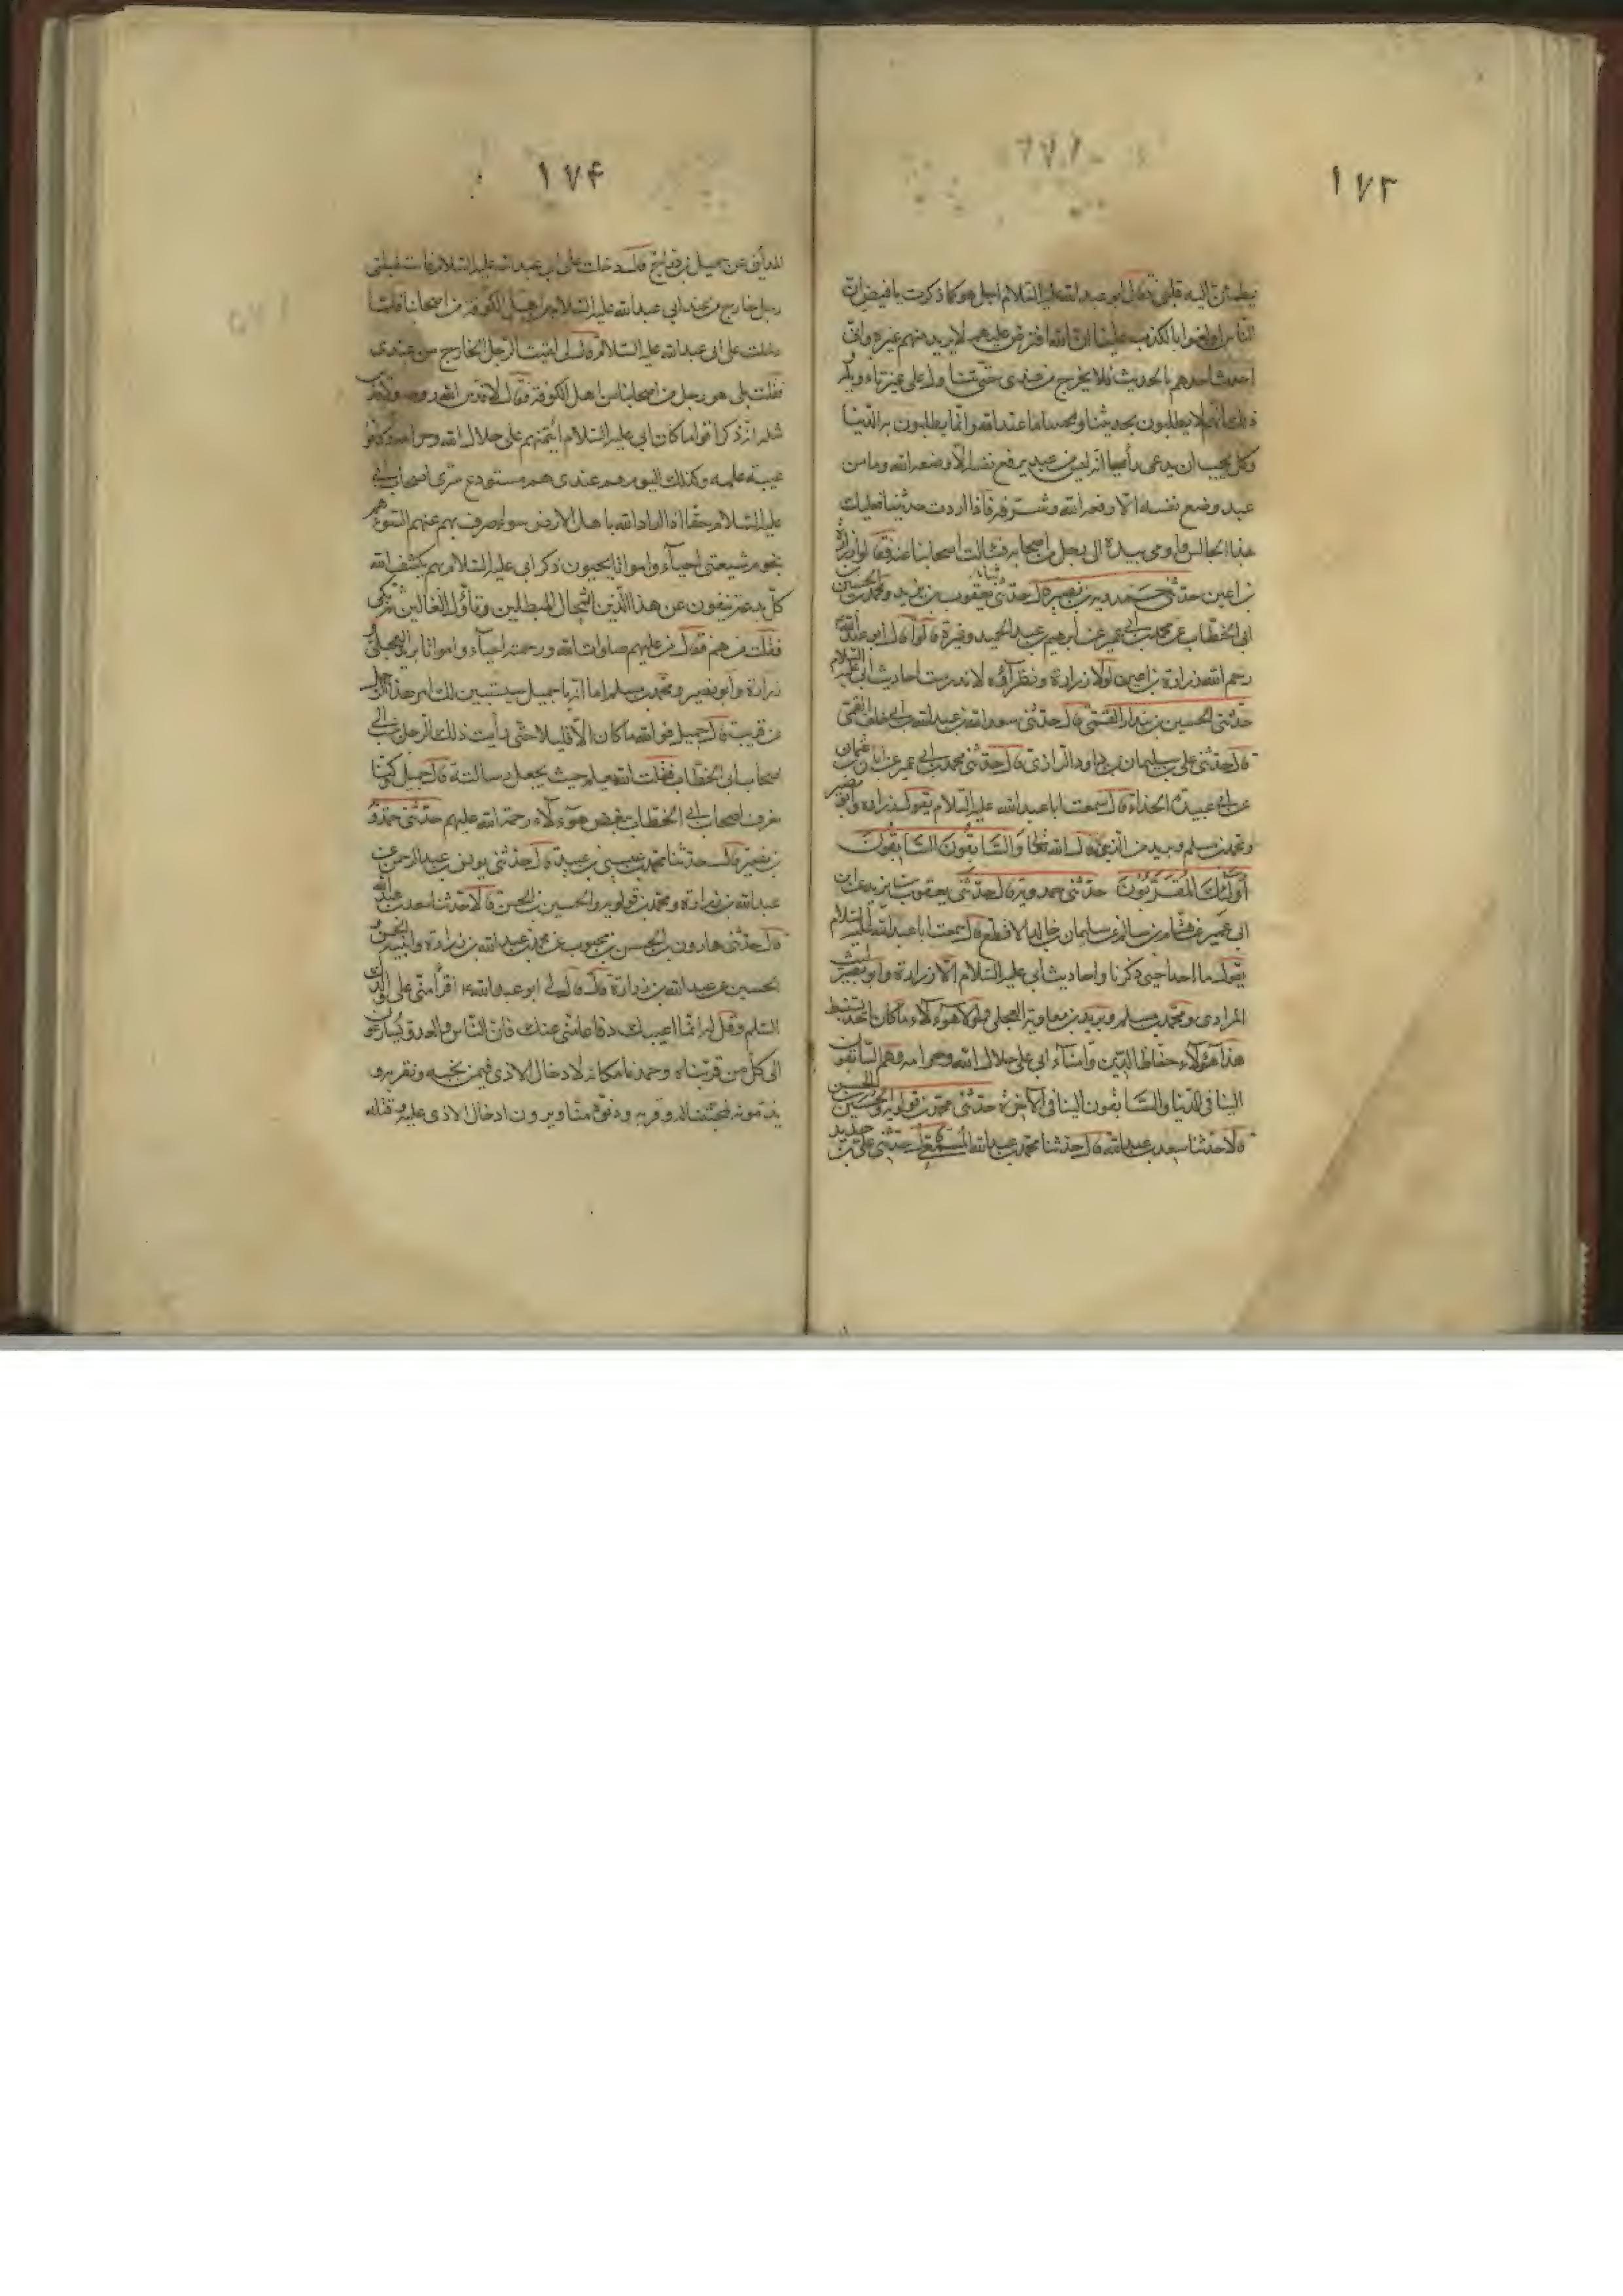 ١٧٣
يطمئن اليه قلبي فقال ابو عبد الله عليه السلام اجل هو كما ذكرت يا فيض ان
الناس اولعوا بالكذب علينا ان الله افترض عليهم لا يريد منهم غيره واني
احدث احدهم بالحديث فلا يخرج من عندي حتى يتناوله على غير تاويله
ذلك انهم لا يطلبون بحديثنا وبحبنا ما عند الله وانما يطلبون به الدنيا
وكل يحب ان يدعى رأسا انه ليس من عبد يرفع نفسه الا وضعه الله وما من
عبد وضع نفسه الا رفعه الله وشرفه فاذا اردت حديثنا فعليك
بهذا الجالس واومى بيده الى رجل من اصحابه فسالت اصحابنا عنه فقالوا زرارة
بن اعين حدثني حمدويه بن نصير قال حدثني يعقوب بن يزيد ومحمد بن الحسين بن
ابي الخطاب عن محمد بن ابي عمير عن ابرهيم بن عبد الحميد وغيره قالوا قال ابو عبد الله
رحم الله زرارة بن اعين لولا زرارة ونظراؤه لاندرست احاديث ابي عليه السلام
حدثني الحسين بن بندار القمي قال حدثني سعد بن عبد الله بن ابي خلف القمي
قال حدثني علي بن سليمان بن داود الرازي قال حدثني محمد بن ابي عمير عن ابان بن عثمان
عن ابي عبيدة الحذاء قال سمعت ابا عبد الله عليه السلام يقول زرارة وابو بصير
ومحمد بن مسلم وبريد من الذين قال الله تعالى وَالسَّابِقُونَ السَّابِقُونَ
أُولَئِكَ الْمُقَرَّبُونَ حدثني حمدويه قال حدثني يعقوب بن يزيد عن ابن
ابي عمير عن هشام بن سالم عن سليمان بن خالد الاقطع قال سمعت ابا عبد الله عليه السلام
يقول ما احد احيى ذكرنا واحاديث ابي عليه السلام الا زرارة وابو بصير ليث
المرادي ومحمد بن مسلم وبريد بن معاوية العجلي ولولا هؤلاء ما كان احد يستنبط
هذا هؤلاء حفاظ الدين وامناء ابي على حلال الله وحرامه وهم السابقون
الينا في الدنيا والسابقون الينا في الآخرة حدثني محمد بن قولويه والحسين بن الحسن
قالا حدثنا سعد بن عبد الله قال حدثنا محمد بن عبد الله المسمعي قال حدثني علي بن حديد
١٧۴
المدايني عن جميل بن دراج قال دخلت على ابي عبد الله عليه السلام فاستقبلني
رجل خارج من عند ابي عبد الله عليه السلام من اهل الكوفة من اصحابنا فلما
دخلت على ابي عبد الله عليه السلام قال لي لقيت الرجل الخارج من عندي
فقلت بلى هو رجل من اصحابنا من اهل الكوفة فقال لا قدس الله روحه ولا قدس
مثله انه ذكر اقواما كان ابي عليه السلام ائتمنهم على حلال الله وحرامه وكانوا
عيبة علمه وكذلك اليوم هم عندي هم مستودع سري اصحاب ابي
عليه السلام حقا اذا اراد الله باهل الارض سوءا صرف بهم عنهم السوء هم
نجوم شيعتي احياء وامواتا يحيون ذكر ابي عليه السلام بهم يكشف الله
كل بدعة ينفون عن هذا الدين انتحال المبطلين وتأول الغالين ثم بكى
فقلت من هم فقال من عليهم صلوات الله ورحمته احياء وامواتا بريد العجلي
زرارة وابو بصير ومحمد بن مسلم اما انه يا جميل سيتبين لك امر هذا الرجل
عن قريب قال جميل فوالله ما كان الا قليلا حتى رأيت ذلك الرجل ينسب الى
اصحاب ابي الخطاب فقلت الله يعلم حيث يجعل رسالته قال جميل كنا
نعرف اصحاب ابي الخطاب ببغض هؤلاء رحمة الله عليهم حدثني حمدويه
بن نصير قال حدثنا محمد بن عيسى بن عبيد قال حدثني يونس بن عبد الرحمن عن
عبد الله بن زرارة ومحمد بن قولويه والحسين بن الحسن قالا حدثنا سعد بن عبد الله
قال حدثني هارون بن الحسن بن محبوب عن محمد بن عبد الله بن زرارة وابنيه الحسن و
الحسين عن عبد الله بن زرارة قال قال لي ابو عبد الله ع اقرأ مني على والدك
السلم وقل له انما اعيبك دفاعا مني عنك فان الناس والعدو يسارعون
الى كل من قربناه وحمدنا مكانه لادخال الاذى فيمن نحبه ونقربه و
يذمونه لمحبتنا له وقربه ودنوه منا ويرون ادخال الاذى عليه وقتله